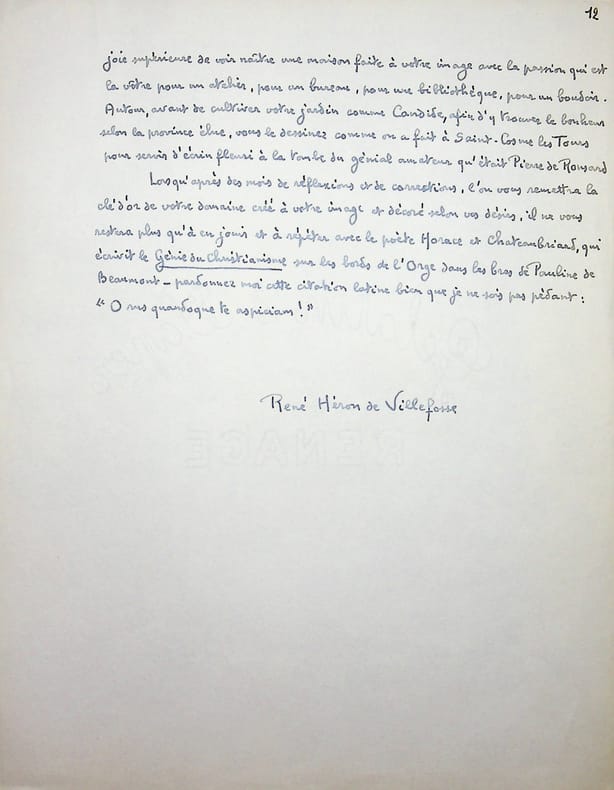 12
joie supérieure de voir naître une maison faite à votre image avec la passion qui est
la vôtre pour un atelier, pour un bureau, pour une bibliothèque, pour un boudoir.
Autour, avant de cultiver votre jardin comme Candide, afin d'y trouver le bonheur
selon la province élue, vous le dessinez comme on a fait à Saint-Cosme les Tours
pour servir d'écrin fleuri à la tombe du génial amateur qu'était Pierre de Ronsard
Lorsqu'après des mois de réflexions et de corrections, l'on vous remettra la
clé d'or de votre domaine créé à votre image et décoré selon vos désirs, il ne vous
restera plus qu'à en jouir et à répéter avec le poète Horace et Chateaubriand, qui
écrivit le Génie du Christianisme sur les bords de l'Orge dans les bras de Pauline de
Beaumont - pardonnez moi cette citation latine bien que je ne sois pas pédant :
"O rus quandoque te aspiciam !"
René Héron de Villefosse
RENAGE